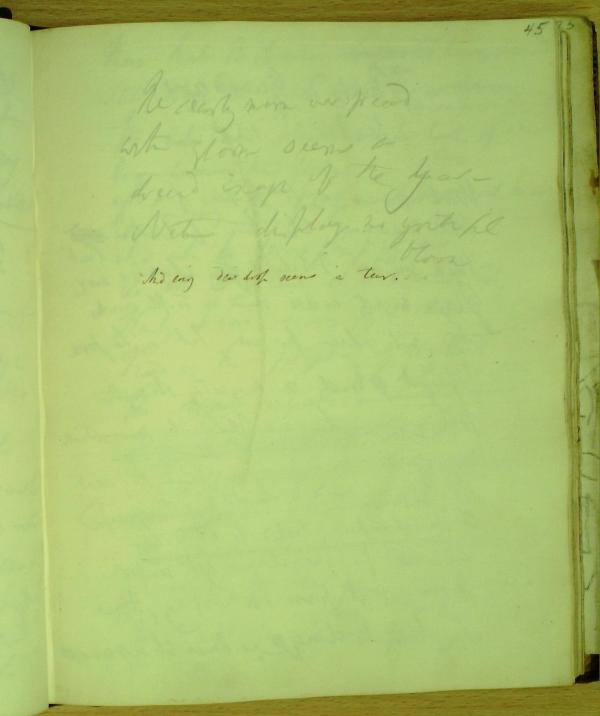 45
The early morn overspread
with gloom seems a
dread image of the Year
displays no youthful
bloom
And every dew drop seems a tear.